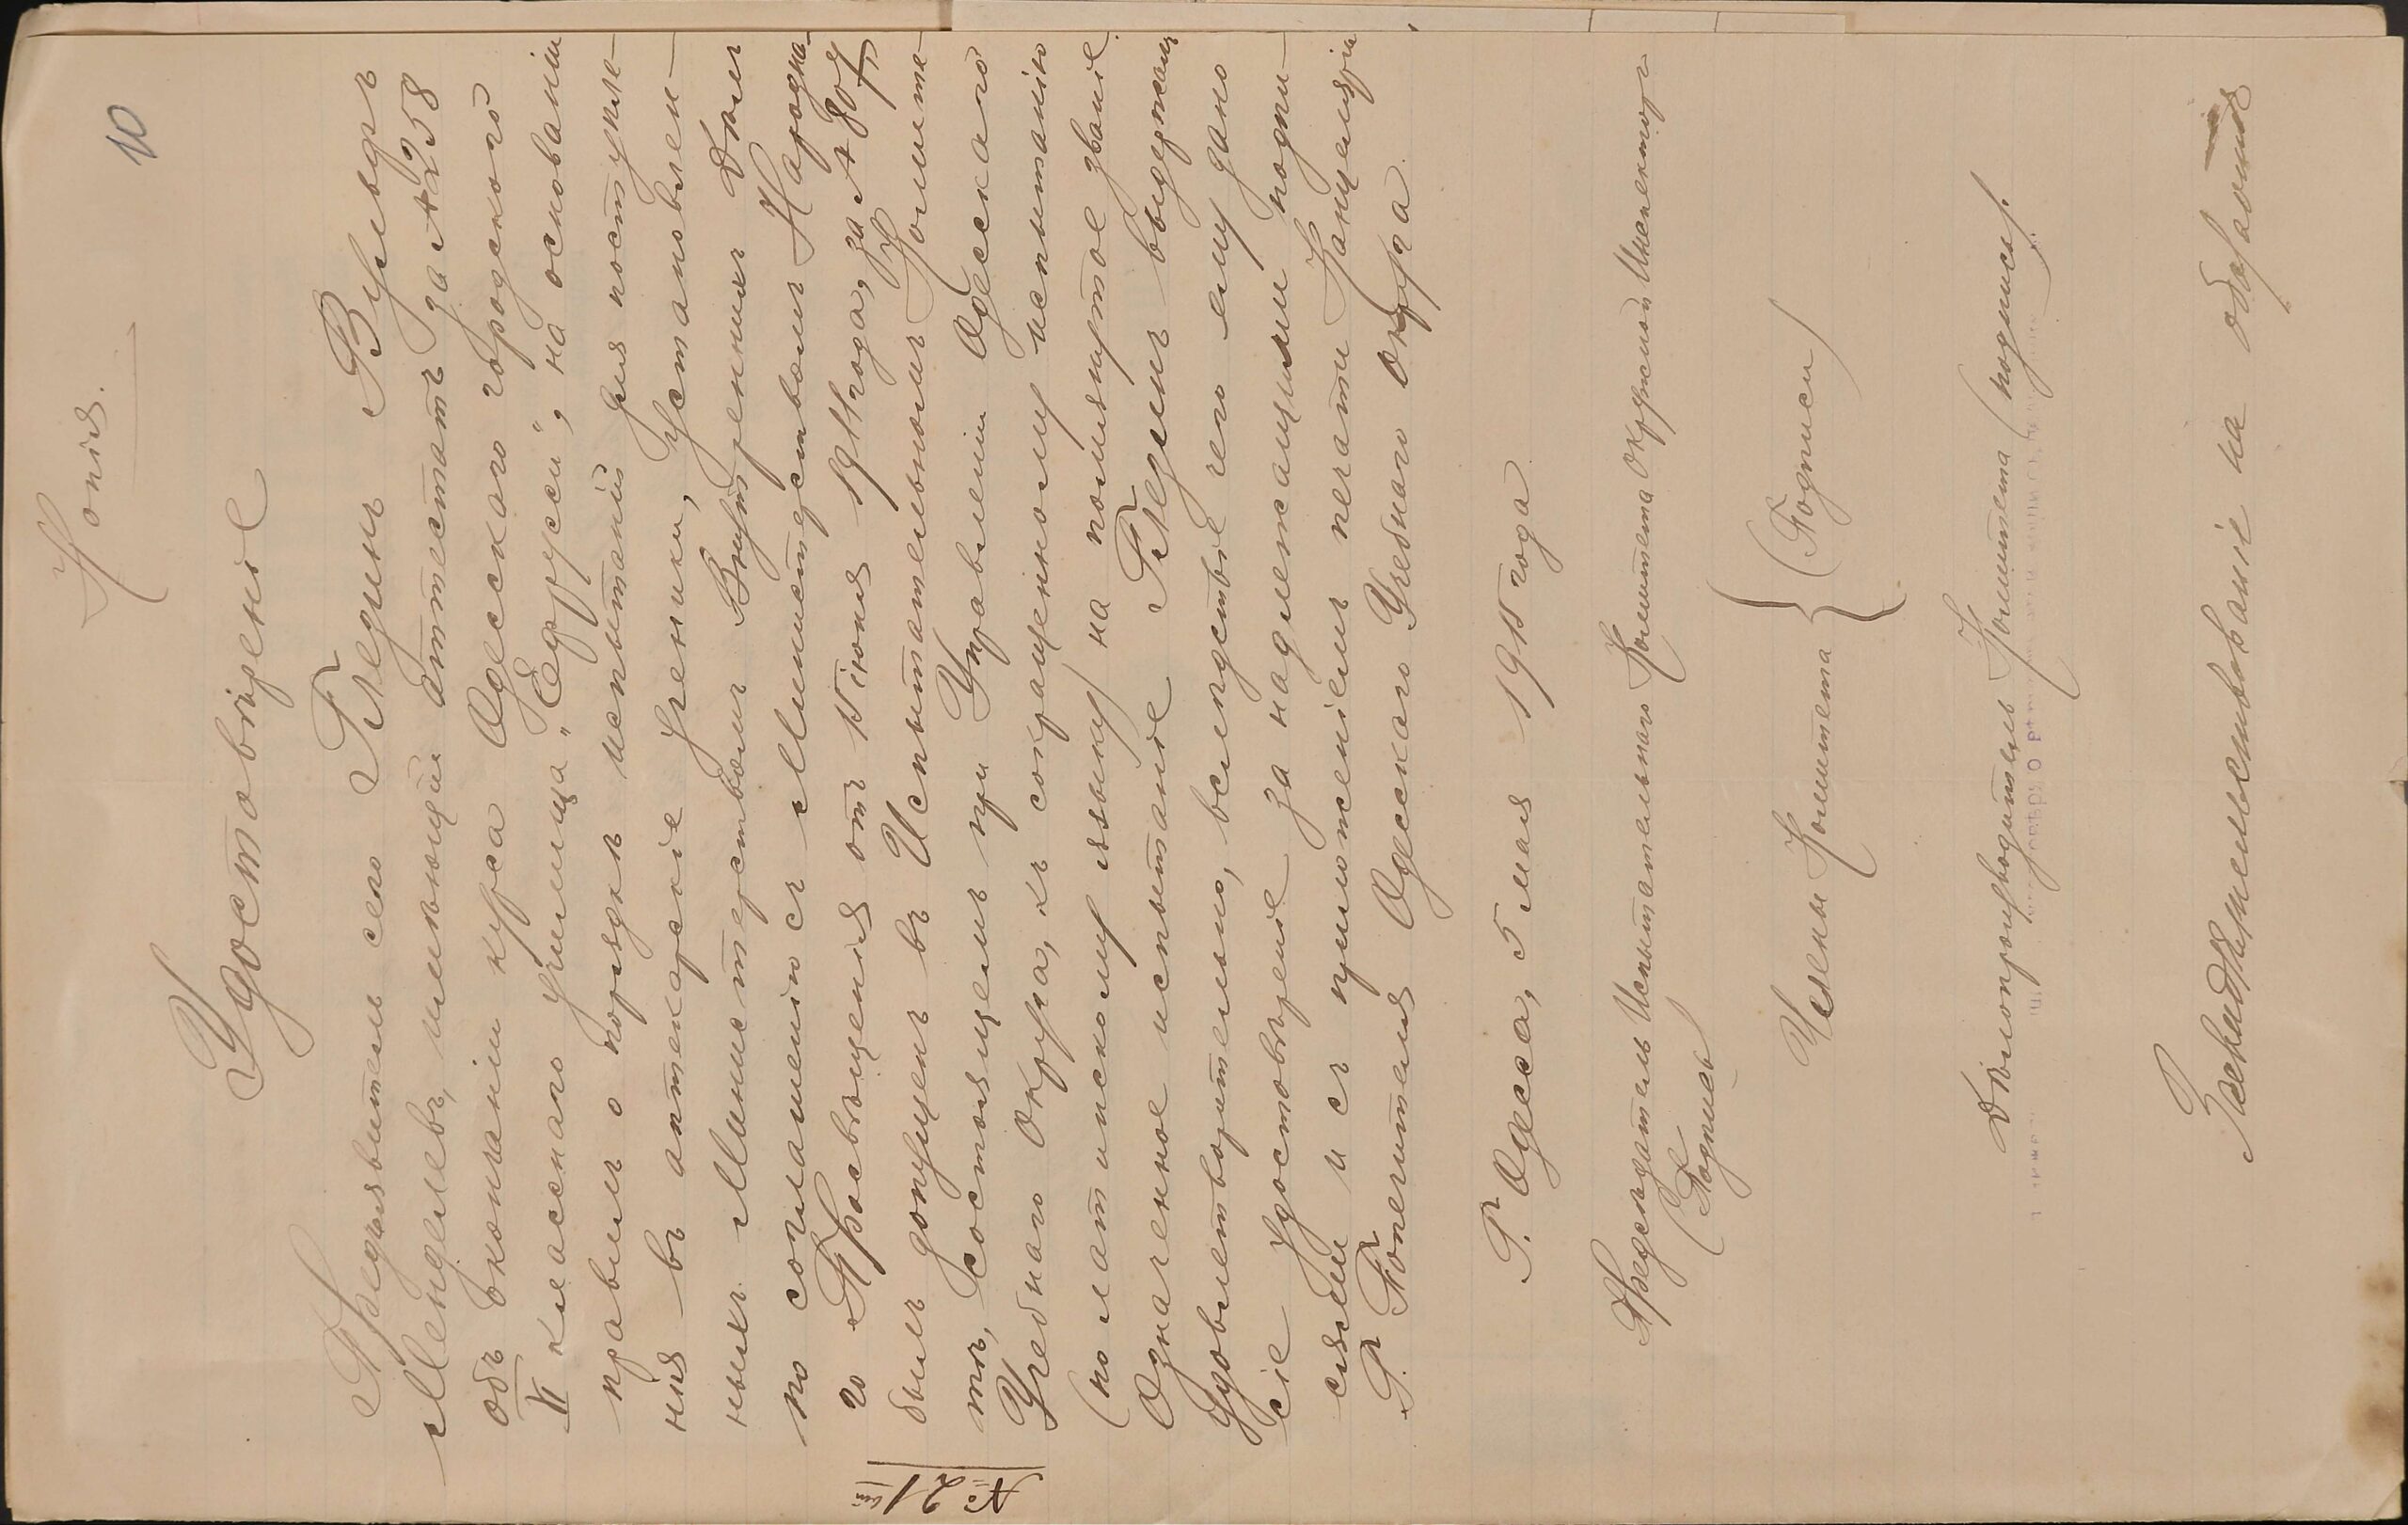 10
Копія.
Удостовѣреніе
Предъявитель сего Глединъ Вульфъ
Менделевъ, имѣющій аттестатъ за № 258
объ окончаніи курса Одесскаго городского
VI класснаго училища "Ефрусси", на основаніи
правилъ о порядкѣ испытаній для поступле-
нія въ аптекарскіе ученики, установлен-
ныхъ Министерствомъ Внутреннихъ Дѣлъ
по соглашенію съ Министерствомъ Народна-
го Просвѣщенія отъ 15 іюня 1911 года, за №
былъ допущенъ въ Испытательномъ Комите-
тѣ, состоящемъ при Управленіи Одесскаго
Учебнаго Округа, къ сокращенному испытанію
(по латинскому языку) на помянутое званіе.
Означенное испытаніе Гледин выдержалъ
удовлетворительно, вслѣдствіе чего ему дано
сіе удостовѣреніе за надлежащими подпи-
сями и съ приложеніемъ печати Канцеляріи
Г. Попечителя Одесскаго Учебнаго округа.
Г. Одесса, 5 мая 1915 года
Предсѣдатель Испытательнаго Комитета Окружной Инспекторъ
(Подпись)
Члены Комитета } (Подписи)
Дѣлопроизводитель Комитета (подпись).
Засвидѣтельствованіе на оборотѣ
№ 21